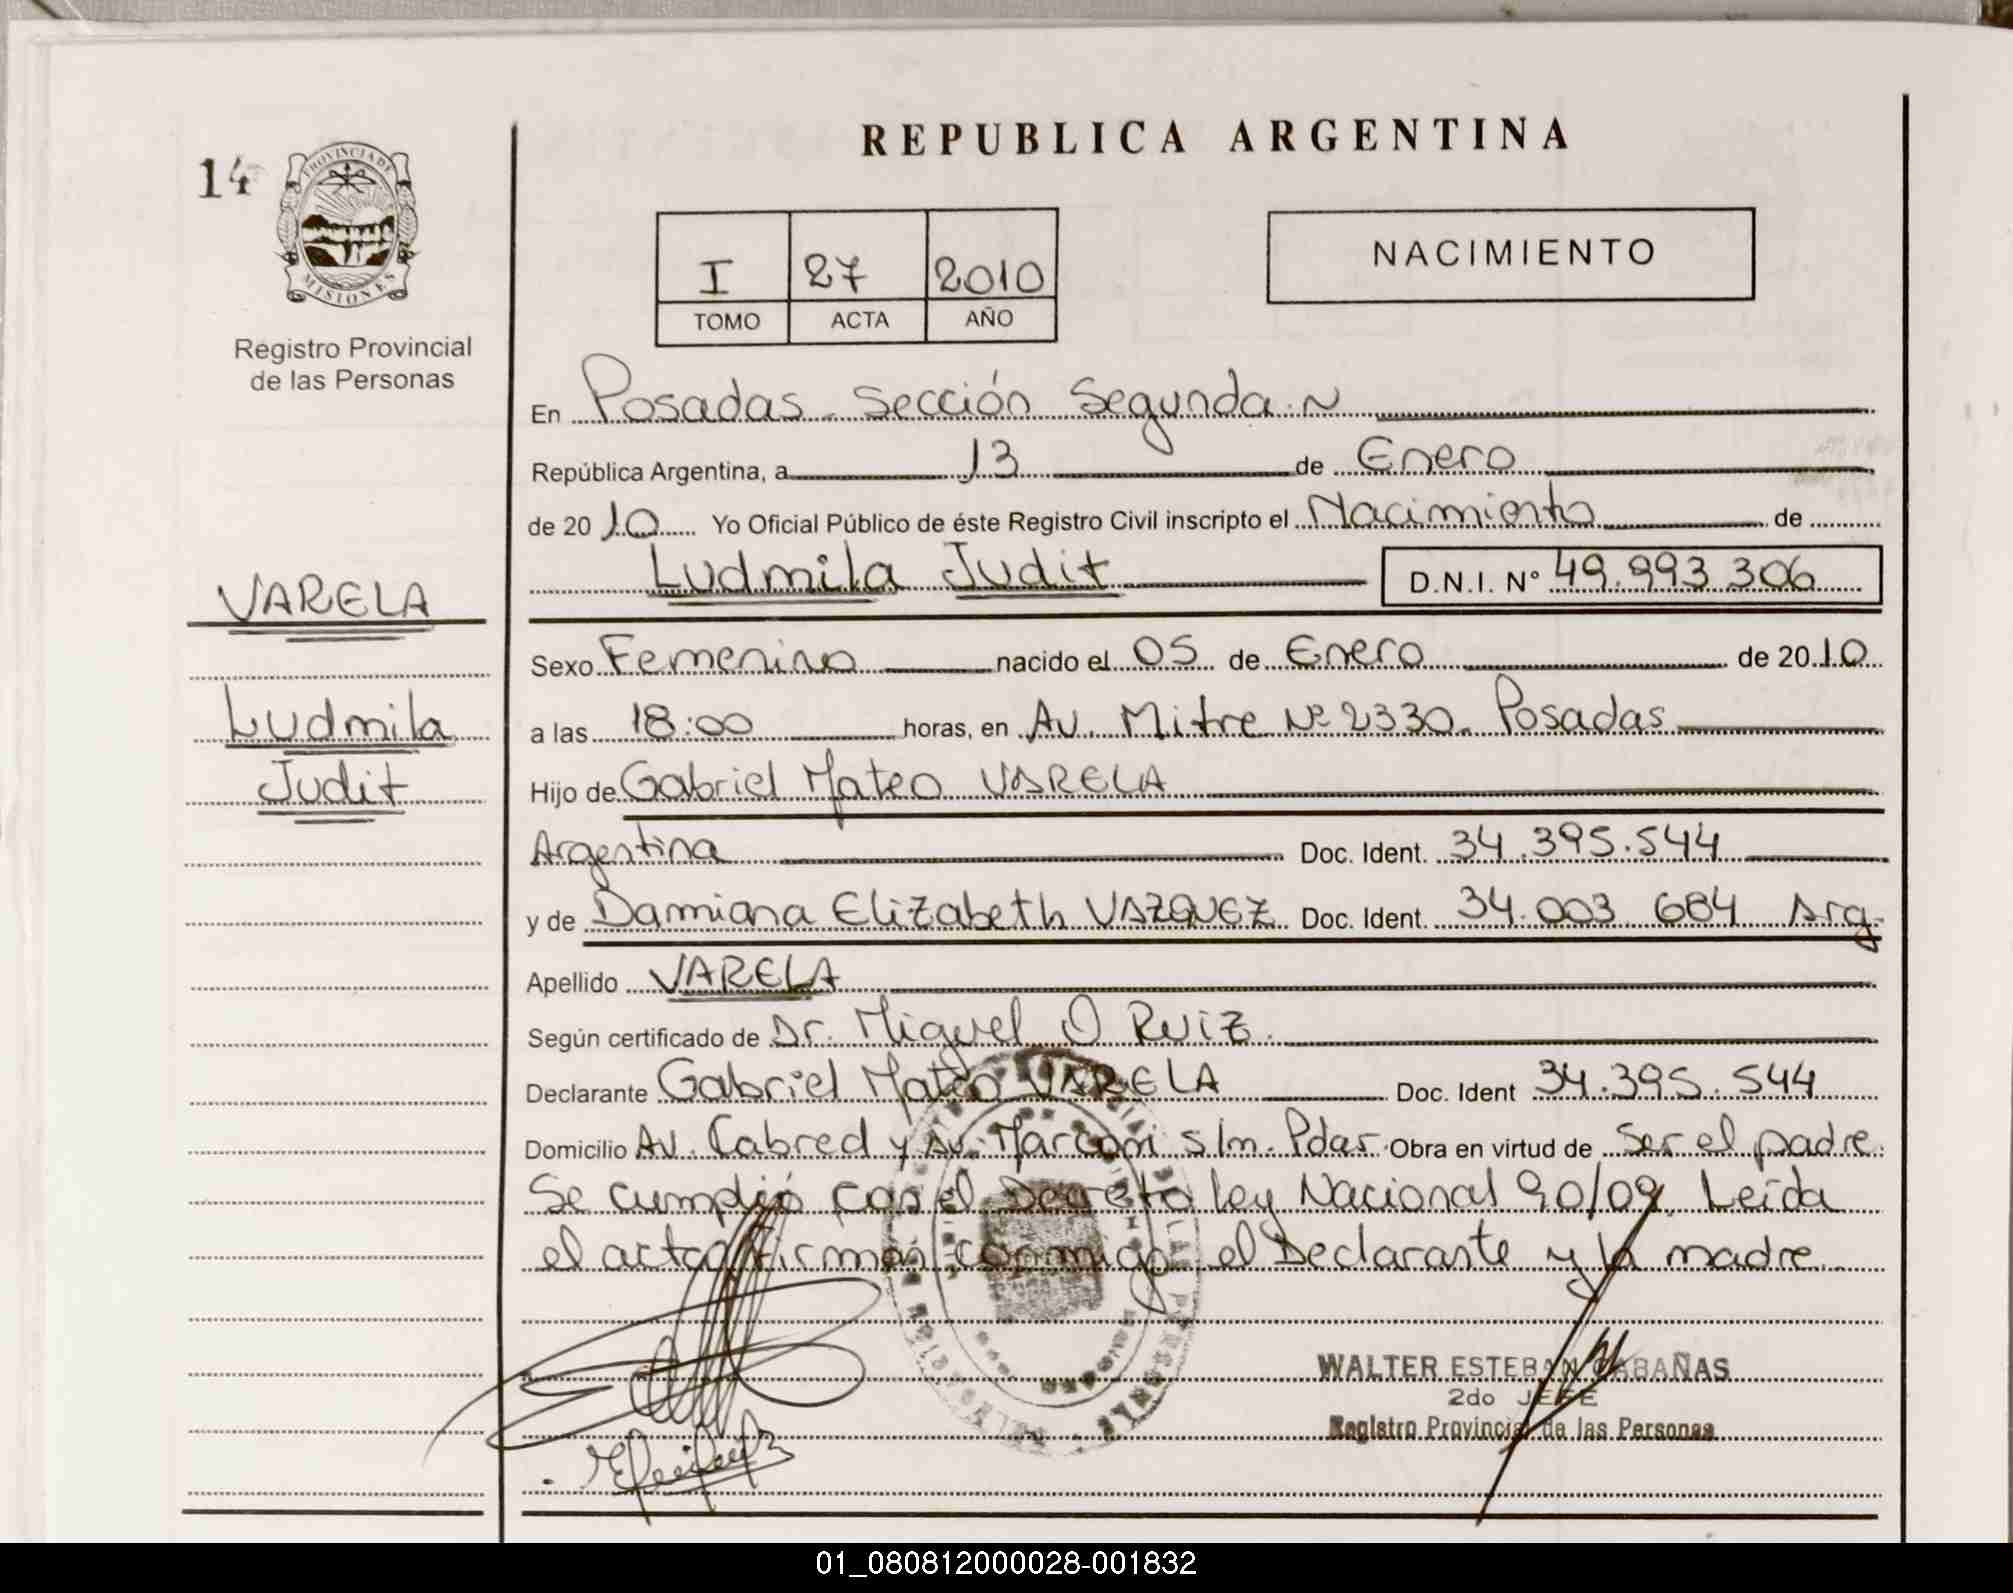 REPUBLICA ARGENTINA
14
PROVINCIA DE
MISIONES
Registro Provincial
de las Personas
I 27 2010
TOMO ACTA AÑO
NACIMIENTO
En Posadas Sección Segunda
República Argentina, a 13 de Enero
de 2010 Yo Oficial Público de éste Registro Civil inscripto el Nacimiento de
Ludmila Judit D.N.I. Nº 49.993.306
VARELA
Ludmila
Judit
Sexo Femenino nacido el 05 de Enero de 2010
a las 18:00 horas, en Av. Mitre Nº 2330. Posadas
Hijo de Gabriel Mateo VARELA
Argentina Doc. Ident. 34.395.544
y de Damiana Elizabeth VAZQUEZ Doc. Ident. 34.003 684 Arg.
Apellido VARELA
Según certificado de Dr. Miguel O Ruiz.
Declarante Gabriel Mateo VARELA Doc. Ident 34.395.544
Domicilio Av. Cabred y Av. Marconi s/n. Pdas. Obra en virtud de ser el padre.
Se cumplió con el Decreto ley Nacional 90/09. Leída
el acta firman conmigo el Declarante y la madre
WALTER ESTEBAN CABAÑAS
2do JEFE
Registro Provincial de las Personas
01_080812000028-001832